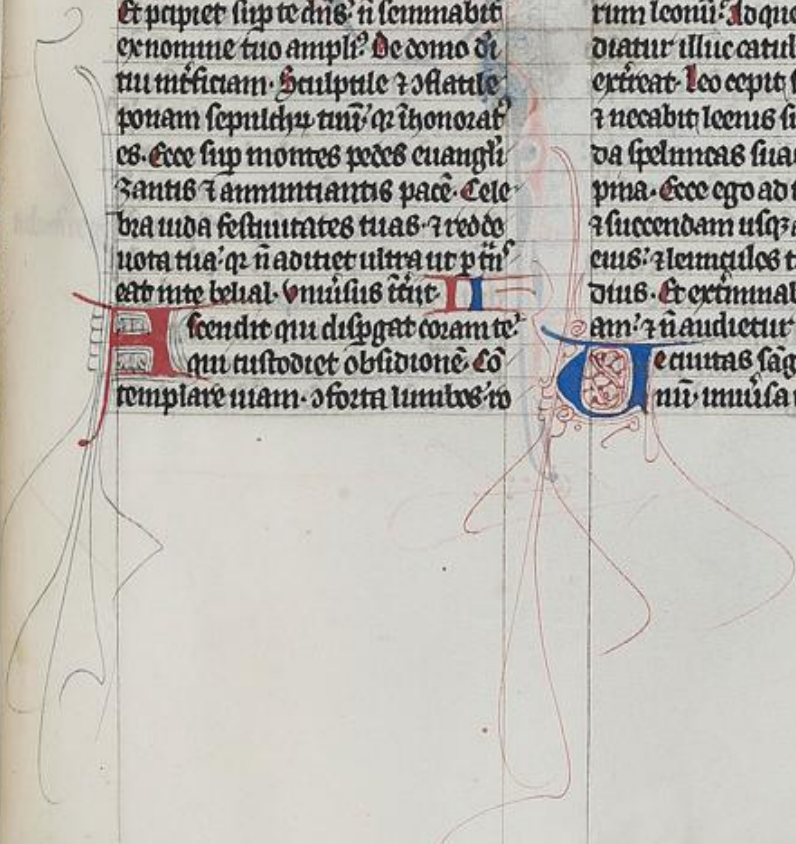 Et p̄cipiet sup te dn̄s: n̄ seminabit᷑
ex nomine tuo ampliꝰ De domo d̄i
tui int̄ficiam· Sculptile ⁊ ↄflatile
ponam sepulchꝝ tuū: qꝛ īhonoratꝰ
es· Ecce sup montes pedes euangli
zantis ⁊ annuntiantis pacē· Cele
bra iuda festiuitates tuas· ⁊ redde
uota tua: qꝛ n̄ adiciet ultra ut p t̄n̄s
eat in te belial· vniūsus īt̄ijt II
Ascendit qui disp̄gat coram te:
qui custodiet obsidionē· Cō
templare uiam· ↄforta lumbos· ro
rum leonū: Ad que
diatur illuc catul
ext̄reat· Leo cepit s
⁊ necabit leenis s
da speluncas sua
pina· Ecce ego ad t
⁊ succendam usqꝫ a
eius: ⁊ leunculos t
dius· Et ext̄minab
am: ⁊ n̄ audietur
Ue ciuitas sāg
nū· uniūsa